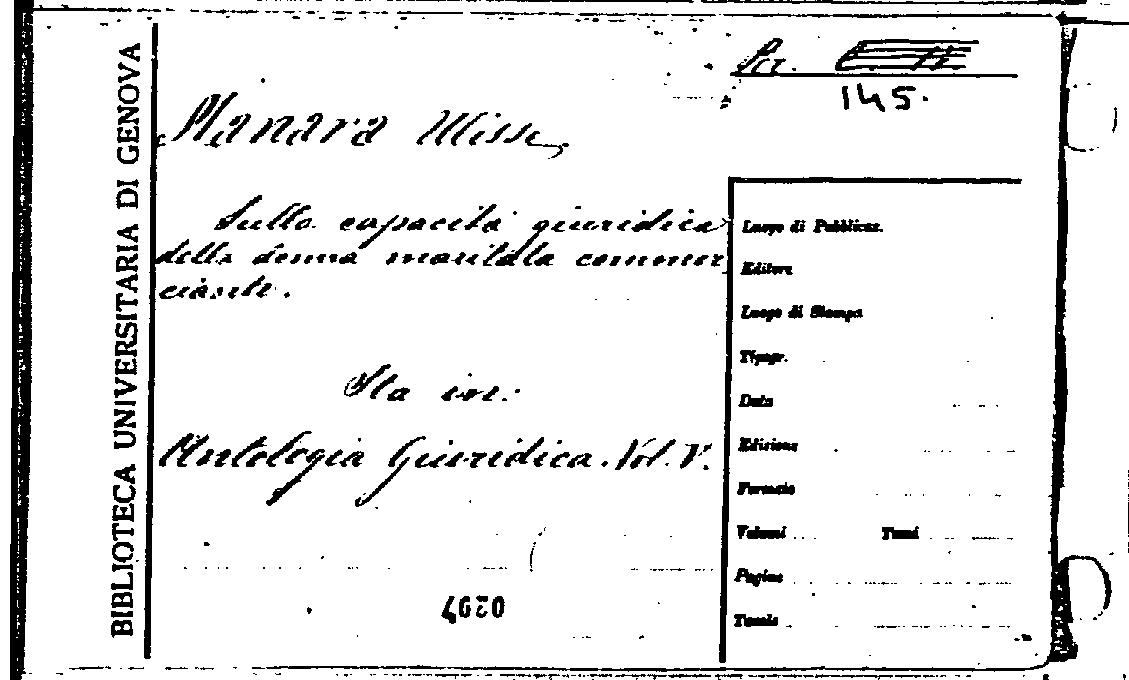 BIBLIOTECA UNIVERSITARIA DI GENOVA
Per.
145.
Manara Ulisse
Sulla capacità giuridica
della donna maritata commer
ciante.
Sta in:
Antologia Giuridica. Vol. V.
Luogo di Pubblicaz.
Editore
Luogo di Stampa
Tipogr.
Data
Edizione
Formato
Volumi Tomi
Pagine
Tavole